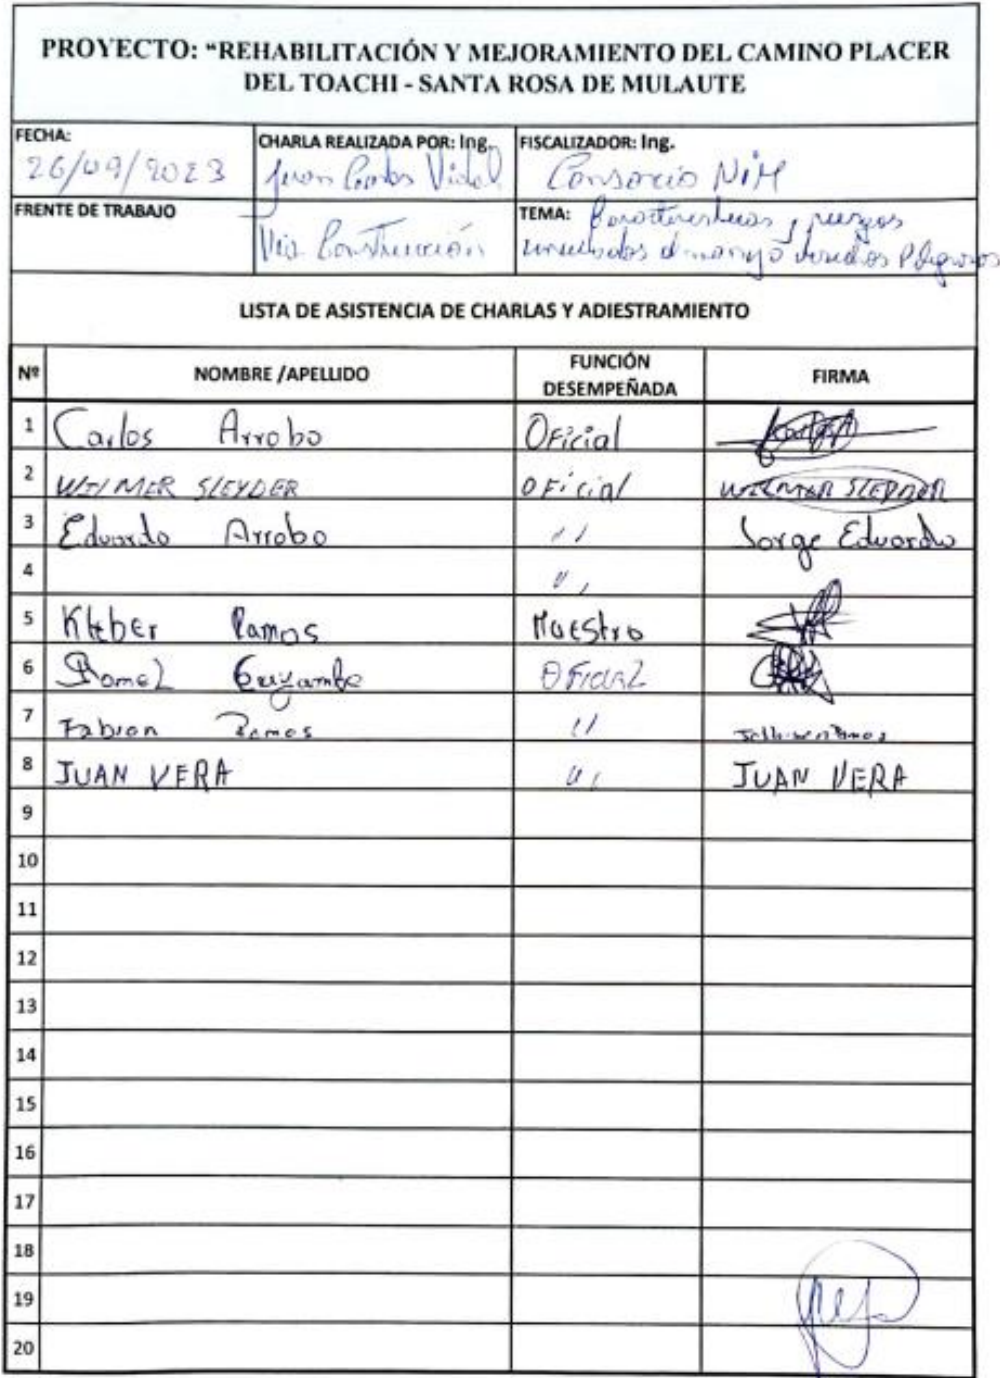 PROYECTO: “REHABILITACIÓN Y MEJORAMIENTO DEL CAMINO PLACER
DEL TOACHI - SANTA ROSA DE MULAUTE
FECHA:
26/09/2023
CHARLA REALIZADA POR: Ing.
Juan Carlos Vidal
FISCALIZADOR: Ing.
Consorcio NiM
FRENTE DE TRABAJO
Via Construcción
TEMA: Caracteristicas y riesgos
Peligrosos
LISTA DE ASISTENCIA DE CHARLAS Y ADIESTRAMIENTO
Nº NOMBRE /APELLIDO FUNCIÓN DESEMPEÑADA FIRMA
1 Carlos Arrobo Oficial
2 WILMER SLEYDER OFicial WILMER
3 Eduardo Arrobo '' Jorge Eduardo
4 ''
5 Kleber Ramos Maestro
6 Romel OFicial
7 Fabian Ramos ''
8 JUAN VERA '' JUAN VERA
9
10
11
12
13
14
15
16
17
18
19
20